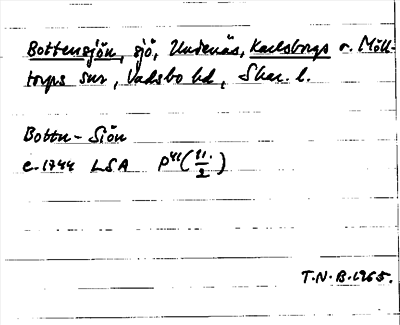 Bottensjön, sjö, Undenäs, Karlsborgs o. Möll-
torps snr, Vadsbo hd, Skar. l.
Bottn - Siön
c. 1744 LSA P⁴¹(11./2)
T.N.B. 1965.